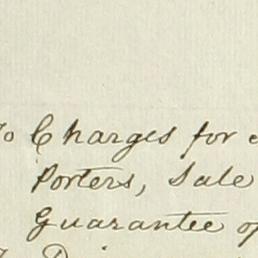 To Charges for
Porters, Sale
Guarantee of